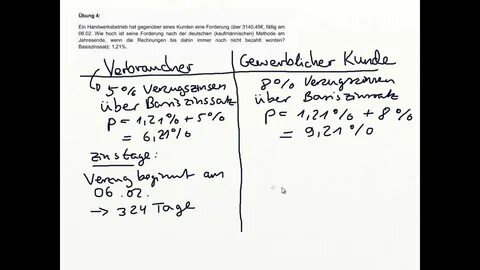 Übung 4:
Ein Handwerksbetrieb hat gegenüber eines Kunden eine Forderung über 3140,45€, fällig am
06.02. Wie hoch ist seine Forderung nach der deutschen (kaufmännischen) Methode am
Jahresende, wenn die Rechnungen bis dahin immer noch nicht bezahlt worden?
Basiszinssatz: 1,21%.
Verbraucher
5% Verzugszinsen
über Basiszinssatz
P = 1,21% + 5%
= 6,21%
Zinstage:
Verzug beginnt am
06.02.
→ 324 Tage
Gewerblicher Kunde
8% Verzugszinsen
über Basiszinssatz
P = 1,21% + 8%
= 9,21%